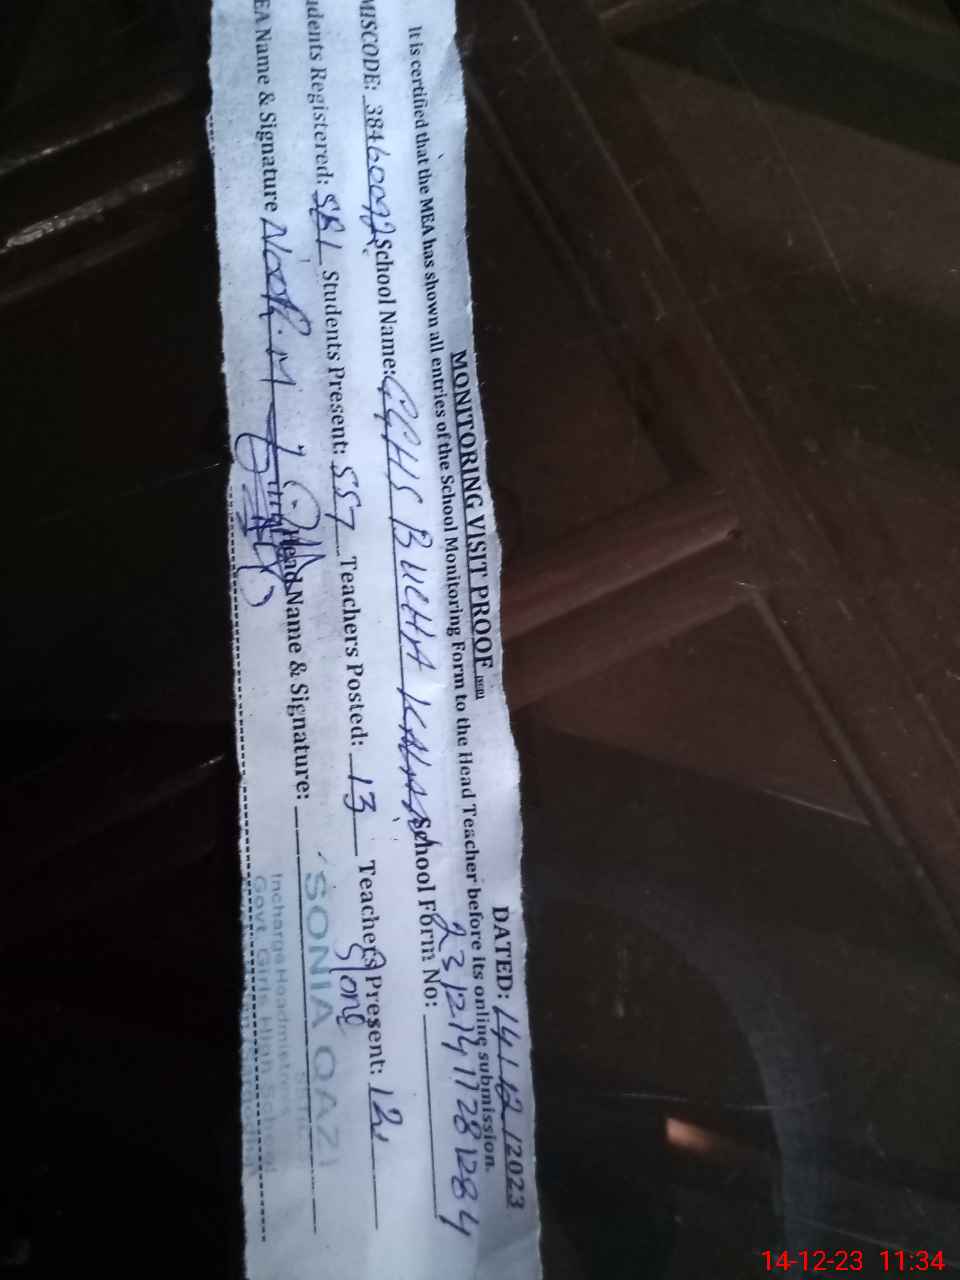 MONITORING VISIT PROOF
DATED: 14/12/2023
It is certified that the MEA has shown all entries of the School Monitoring Form to the Head Teacher before its online submission.
MISCODE: 38460092 School Name: GGHS BUCHA KALAN School Form No: 23121411281284
dents Registered: 581 Students Present: 557 Teachers Posted: 13 Teachers Present: 12
EA Name & Signature Head Name & Signature:
SONIA QAZI
Incharge Headmistress
Govt. Girls High School
14-12-23 11:34